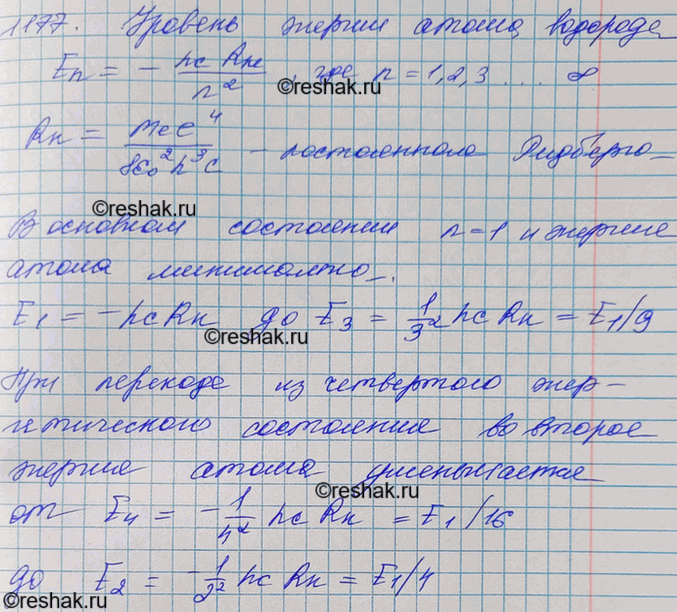 1177. Уровень энергии атома водорода
En = - hc Rн / n² , где n = 1,2,3 .... ∞
©reshak.ru
Rн = mee⁴ / 8ε₀²h³c - постоянная Ридберга
©reshak.ru
В основном состоянии n=1 и энергия
атома минимальна.
E1 = -hcRн до E3 = 1/3² hc Rн = E1/9
©reshak.ru
При переходе из четвертого энер-
гетического состояния во второе
энергия атома уменьшается
©reshak.ru
от E4 = -1/4² hc Rн = E1/16
до E2 = -1/2² hc Rн = E1/4
©reshak.ru